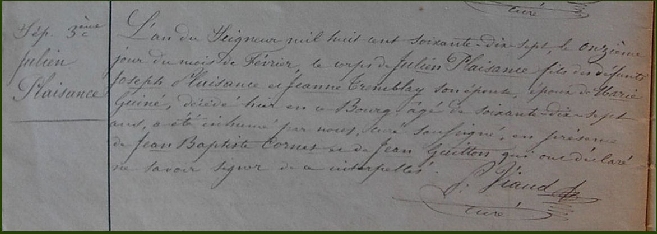 curé
Sép. 3ème
Julien
Plaisance
L'an du Seigneur mil huit cent soixante-dix-sept, le onzième
jour du mois de Février, le corps de Julien Plaisance fils des défunts
Joseph Plaisance et Jeanne Tremblay son épouse, époux de Marie
Guiné, décédé hier en ce Bourg, âgé de soixante-dix-sept
ans, a été inhumé par nous, curé soussigné, en présence
de Jean Baptiste Cornet et de Jean Guitton qui ont déclaré
ne savoir signer de ce interpellés.
J. Viaud
curé